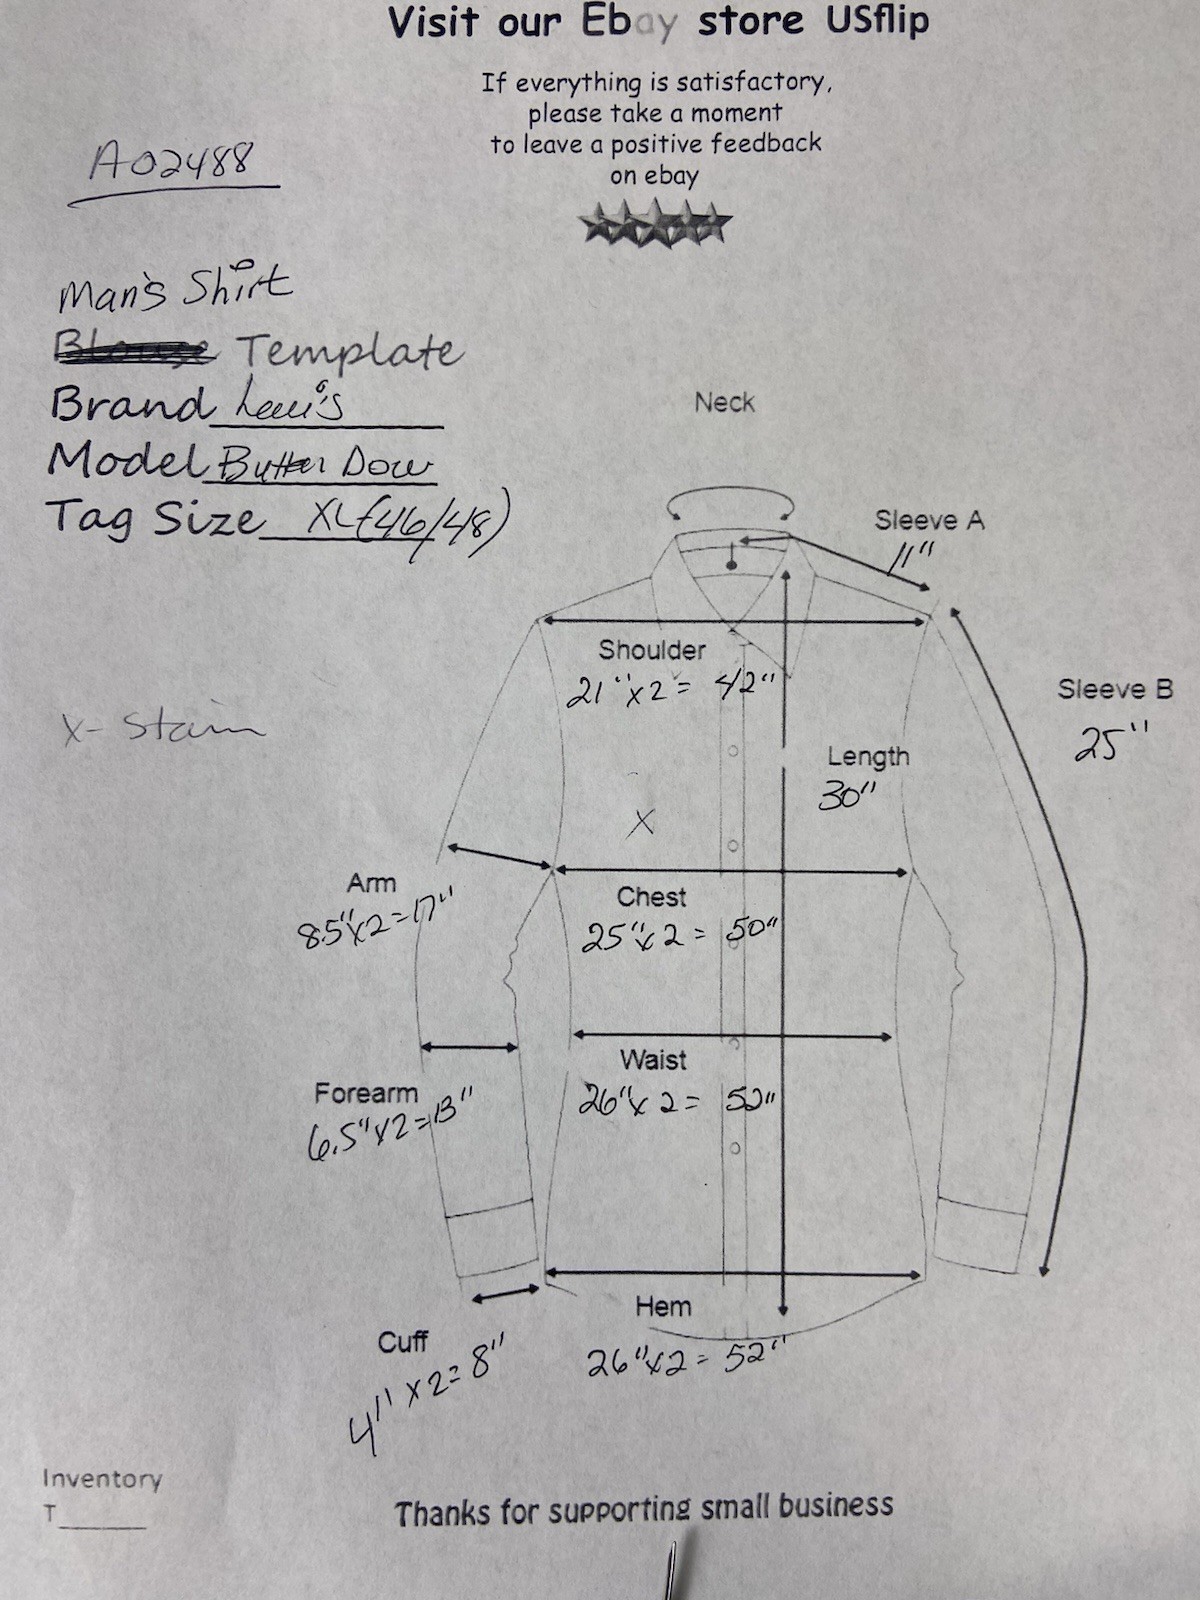 Visit our Ebay store USflip
If everything is satisfactory,
please take a moment
to leave a positive feedback
on ebay
A02488
Man's Shirt
Blouse Template
Brand Levi's
Model Button Down
Tag Size XL (46/48)
Neck
Sleeve A
11"
Shoulder
21" x 2 = 42"
Sleeve B
25"
X- Stain
Length
30"
X
Arm
8.5" x 2 = 17"
Chest
25" x 2 = 50"
Waist
26" x 2 = 52"
Forearm
6.5" x 2 = 13"
Hem
26" x 2 = 52"
Cuff
4" x 2 = 8"
Inventory
T______
Thanks for supporting small business